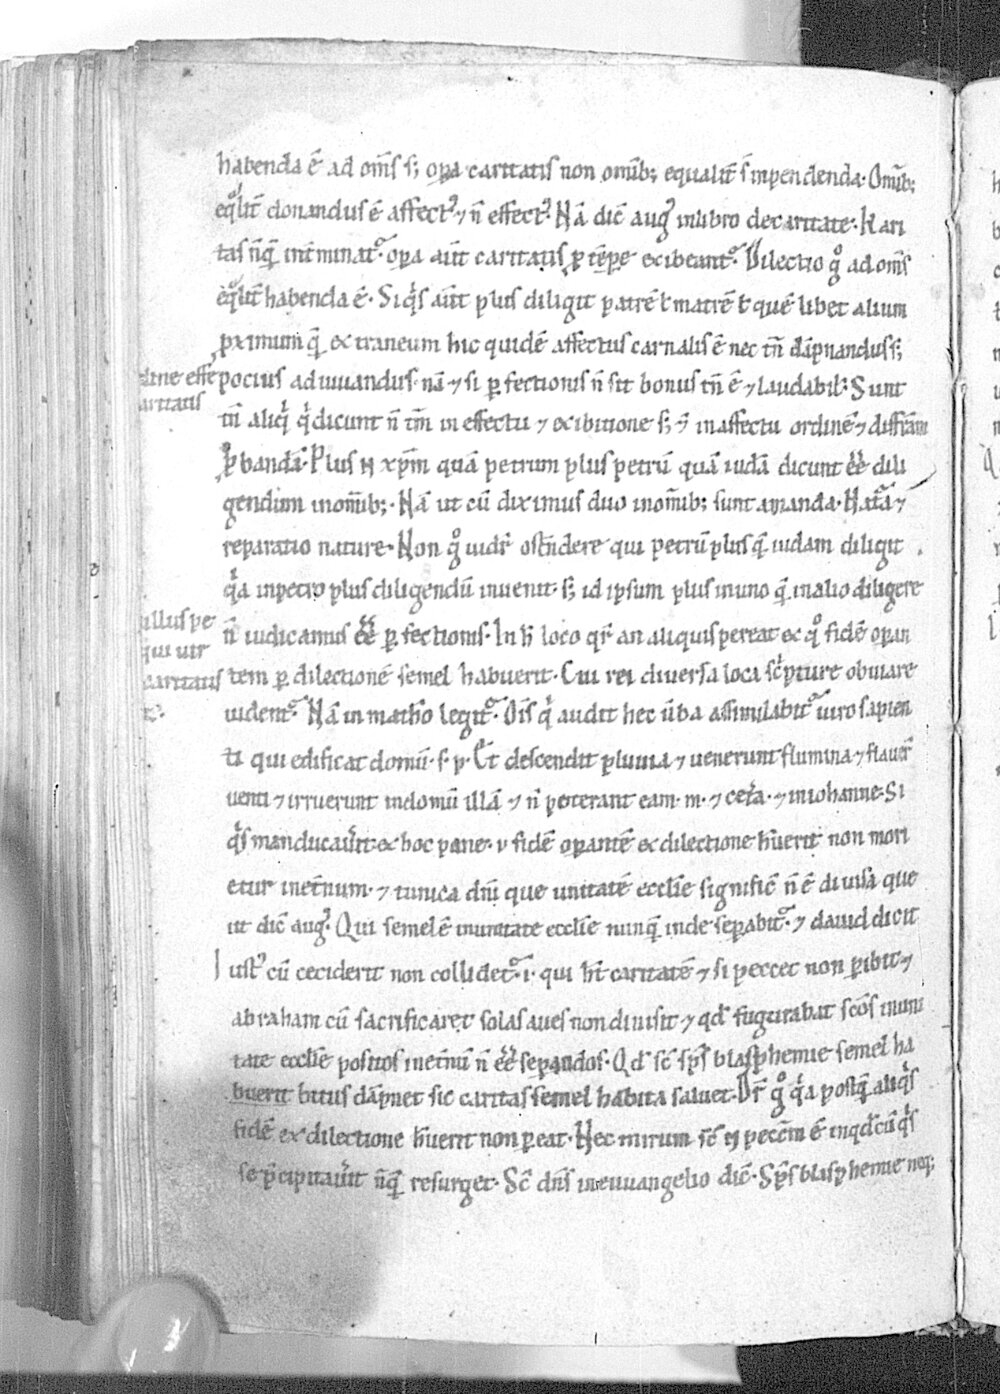 habenda ē ad om̄s s; oꝑa caritatis non om̄ib; equalit̄ s̄ inpendenda. Om̄ib;
eq̊lit̄ donandus ē affectꝰ ⁊ n̄ effectꝰ. Nā dic̄ augꝰ in libro de caritate. Kari
tas nūq̄ int̄minat᷑. oꝑa aūt caritatis ꝓ tēpe exibeant᷑. Dilectio g̊ ad om̄s
eq̊lit̄ habenda ē. Siq̇s aūt plus diligit patrē ł matrē ł quē libet alium
ꝓximum q̄ extraneum hic quidē affectus carnalis ē nec tn̄ dāpnandus s;
pocius adiuuandus. nā ⁊ si ꝑfectionis n̄ sit bonus tn̄ ē ⁊ laudabil. Sunt
tn̄ aliq̇ q̇ dicunt n̄ tm̄ in effectu ⁊ exibitione s; ⁊ in affectu ordinē ⁊ differētiam
ꝓbandā. Plus n̄ xp̄m quā petrum plus petrū quā iudā dicunt ēē dili
gendum in om̄ib;. Nā ut cū diximus duo in om̄ib; sunt amanda. Natᷓa ⁊
reparatio nature. Non g̊ uidr̄ ostēdere qui petrū plus q̄ iudam diligit
q̇a in petro plus diligendū inuenit. s; id ipsum plus in uno q̄ in alio diligere
n̄ iudicamus ēē ꝑfectionis. In h̄ loco qr̄ an aliquis pereat ex q̊ fidē oꝑan
tem ꝑ dilectionē semel habuerit. Cui rei diuersa loca sc̄pture obuiare
uident᷑. Nā in matheo legit᷑. Oīs q̇ audit hec ūba assimilabit᷑ uiro sapien
ti qui edificat domū. s. p. Et descendit pluuia ⁊ uenerunt flumina ⁊ flauer̄
uenti ⁊ irruerunt in domū illā ⁊ n̄ poterant eam. m. ⁊ cetᷓa. ⁊ in iohanne. Si
q̇s manducau̇it ex hoc pane. ł fidē oꝑantē ex dilectione h̄uerit non mori
etur inet̄num. ⁊ tunica dn̄i que unitatē ecclīe significat n̄ ē diuisa que
ut dic̄ augꝰ. Qui semel ē in unitate ecclīe nunq̄ inde seꝑabit᷑. ⁊ dauid dicit
Iustꝰ cū ceciderit non collidet᷑. i. qui h̄t caritatē ⁊ si peccet non ꝑibit ⁊
abraham cū sacrificaret solas aues non diuisit ⁊ qd̄ figurabat sc̄os in uni
tate ecclīe positos inet̄nū n̄ ēē seꝑandos. Qd̄ sc̄ sp̄s blasphemie semel ha
buerit bitus dāpnet sic caritas semel habita saluet. Dr̄ g̊ q̇a postq̄ aliq̇s
fidē ex dilectione h̄uerit non ꝑeat. Nec mirum sc̄ n̄ pecc̄m ē in qd̄ cū q̇s
se p̄cipitau̇it nūq̄ resurget. Sc̄ dn̄s in euuangelio dic̄. Sp̄s blasphemie neq;
dine effe
aritatis
illus pe
qui uir
caritatis